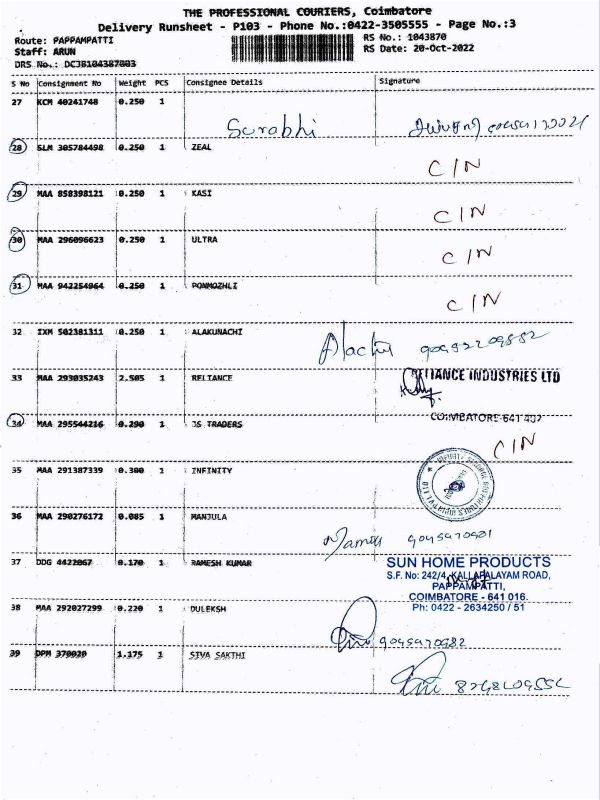 THE PROFESSIONAL COURIERS, Coimbatore
Delivery Runsheet - P103 - Phone No.:0422-3505555 - Page No.:3
Route: PAPPAMPATTI
RS No.: 1043870
Staff: ARUN
RS Date: 20-Oct-2022
DRS No.: DCJB104387003
S No Consignment No Weight PCS Consignee Details Signature
27 KCM 40241748 0.250 1
Surabhi
28 SLM 305784498 0.250 1 ZEAL
C/N
29 MAA 858398121 0.250 1 KASI
C/N
30 MAA 296096623 0.250 1 ULTRA
C/N
31 MAA 942254964 0.250 1 PONMOZHLI
C/N
32 IXM 502381311 0.250 1 ALAKUNACHI
33 MAA 293035243 2.505 1 RELIANCE
RELIANCE INDUSTRIES LTD
COIMBATORE-641 407
34 MAA 295544216 0.290 1 JS TRADERS
C/N
35 MAA 291387339 0.300 1 INFINITY
36 MAA 290276172 0.085 1 MANJULA
37 DDG 4422067 0.170 1 RAMESH KUMAR
SUN HOME PRODUCTS
S.F. No: 242/4, KALLAPALAYAM ROAD,
PAPPAMPATTI,
COIMBATORE - 641 016.
Ph: 0422 - 2634250 / 51
38 MAA 292027299 0.220 1 DULEKSH
39 DPM 370920 1.175 1 SIVA SAKTHI